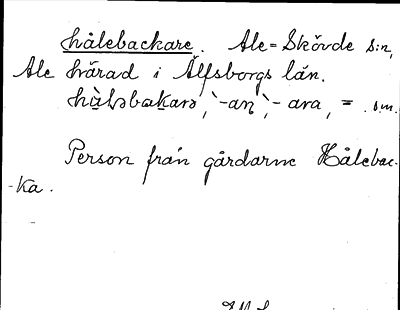 hålebackare. Ale-Skövde s:n,
Ale härad i Älfsborgs län.
-an, -ara, = . sm.
Person från gårdarne Hålebac-
-ka.